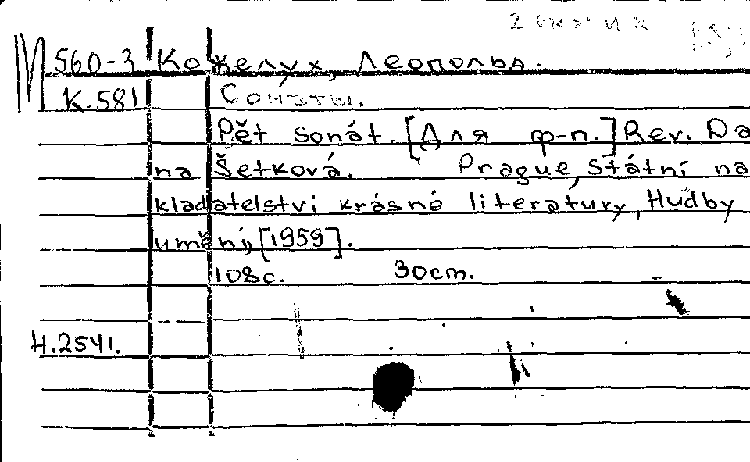 М 560-3 Кожелух, Леопольд.
К.581 Сонаты.
Pět sonát. [Для ф-п.] Rev. Da
na Šetková. Prague, Státní na
kladatelství krásné literatury, Hudby
umění, [1959].
108с. 30cm.
Н.2541.